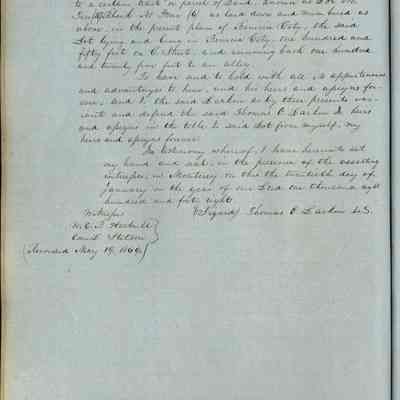 to a certain tract or parcel of Land, known as Lot No
in Block No Four (4) as laid down and numbered as
above, in the present plan of Benicia City, the said
Lot lying and being in Benicia City, one hundred and
fifty feet on C Street, and running back one hundred
and twenty five feet to an alley.
To have and to hold with all its appurtenances
and advantages to him, and his heirs and assigns for-
ever, and I the said Larkin do by these presents war-
rant and defend the said Thomas O. Larkin Jr heirs
and assigns in the title to said Lot from myself, my
heirs and assigns forever.
In testimony whereof, I have hereunto set
my hand and seal, in the presence of the assisting
witnesses, in Monterey on this the twentieth day of
January in the year of our Lord one thousand eight
hundred and forty eight.
Witnesses (Signed) Thomas O. Larkin L.S.
W. E. P. Hartnell
Stetson
(Recorded May 19, 1866)